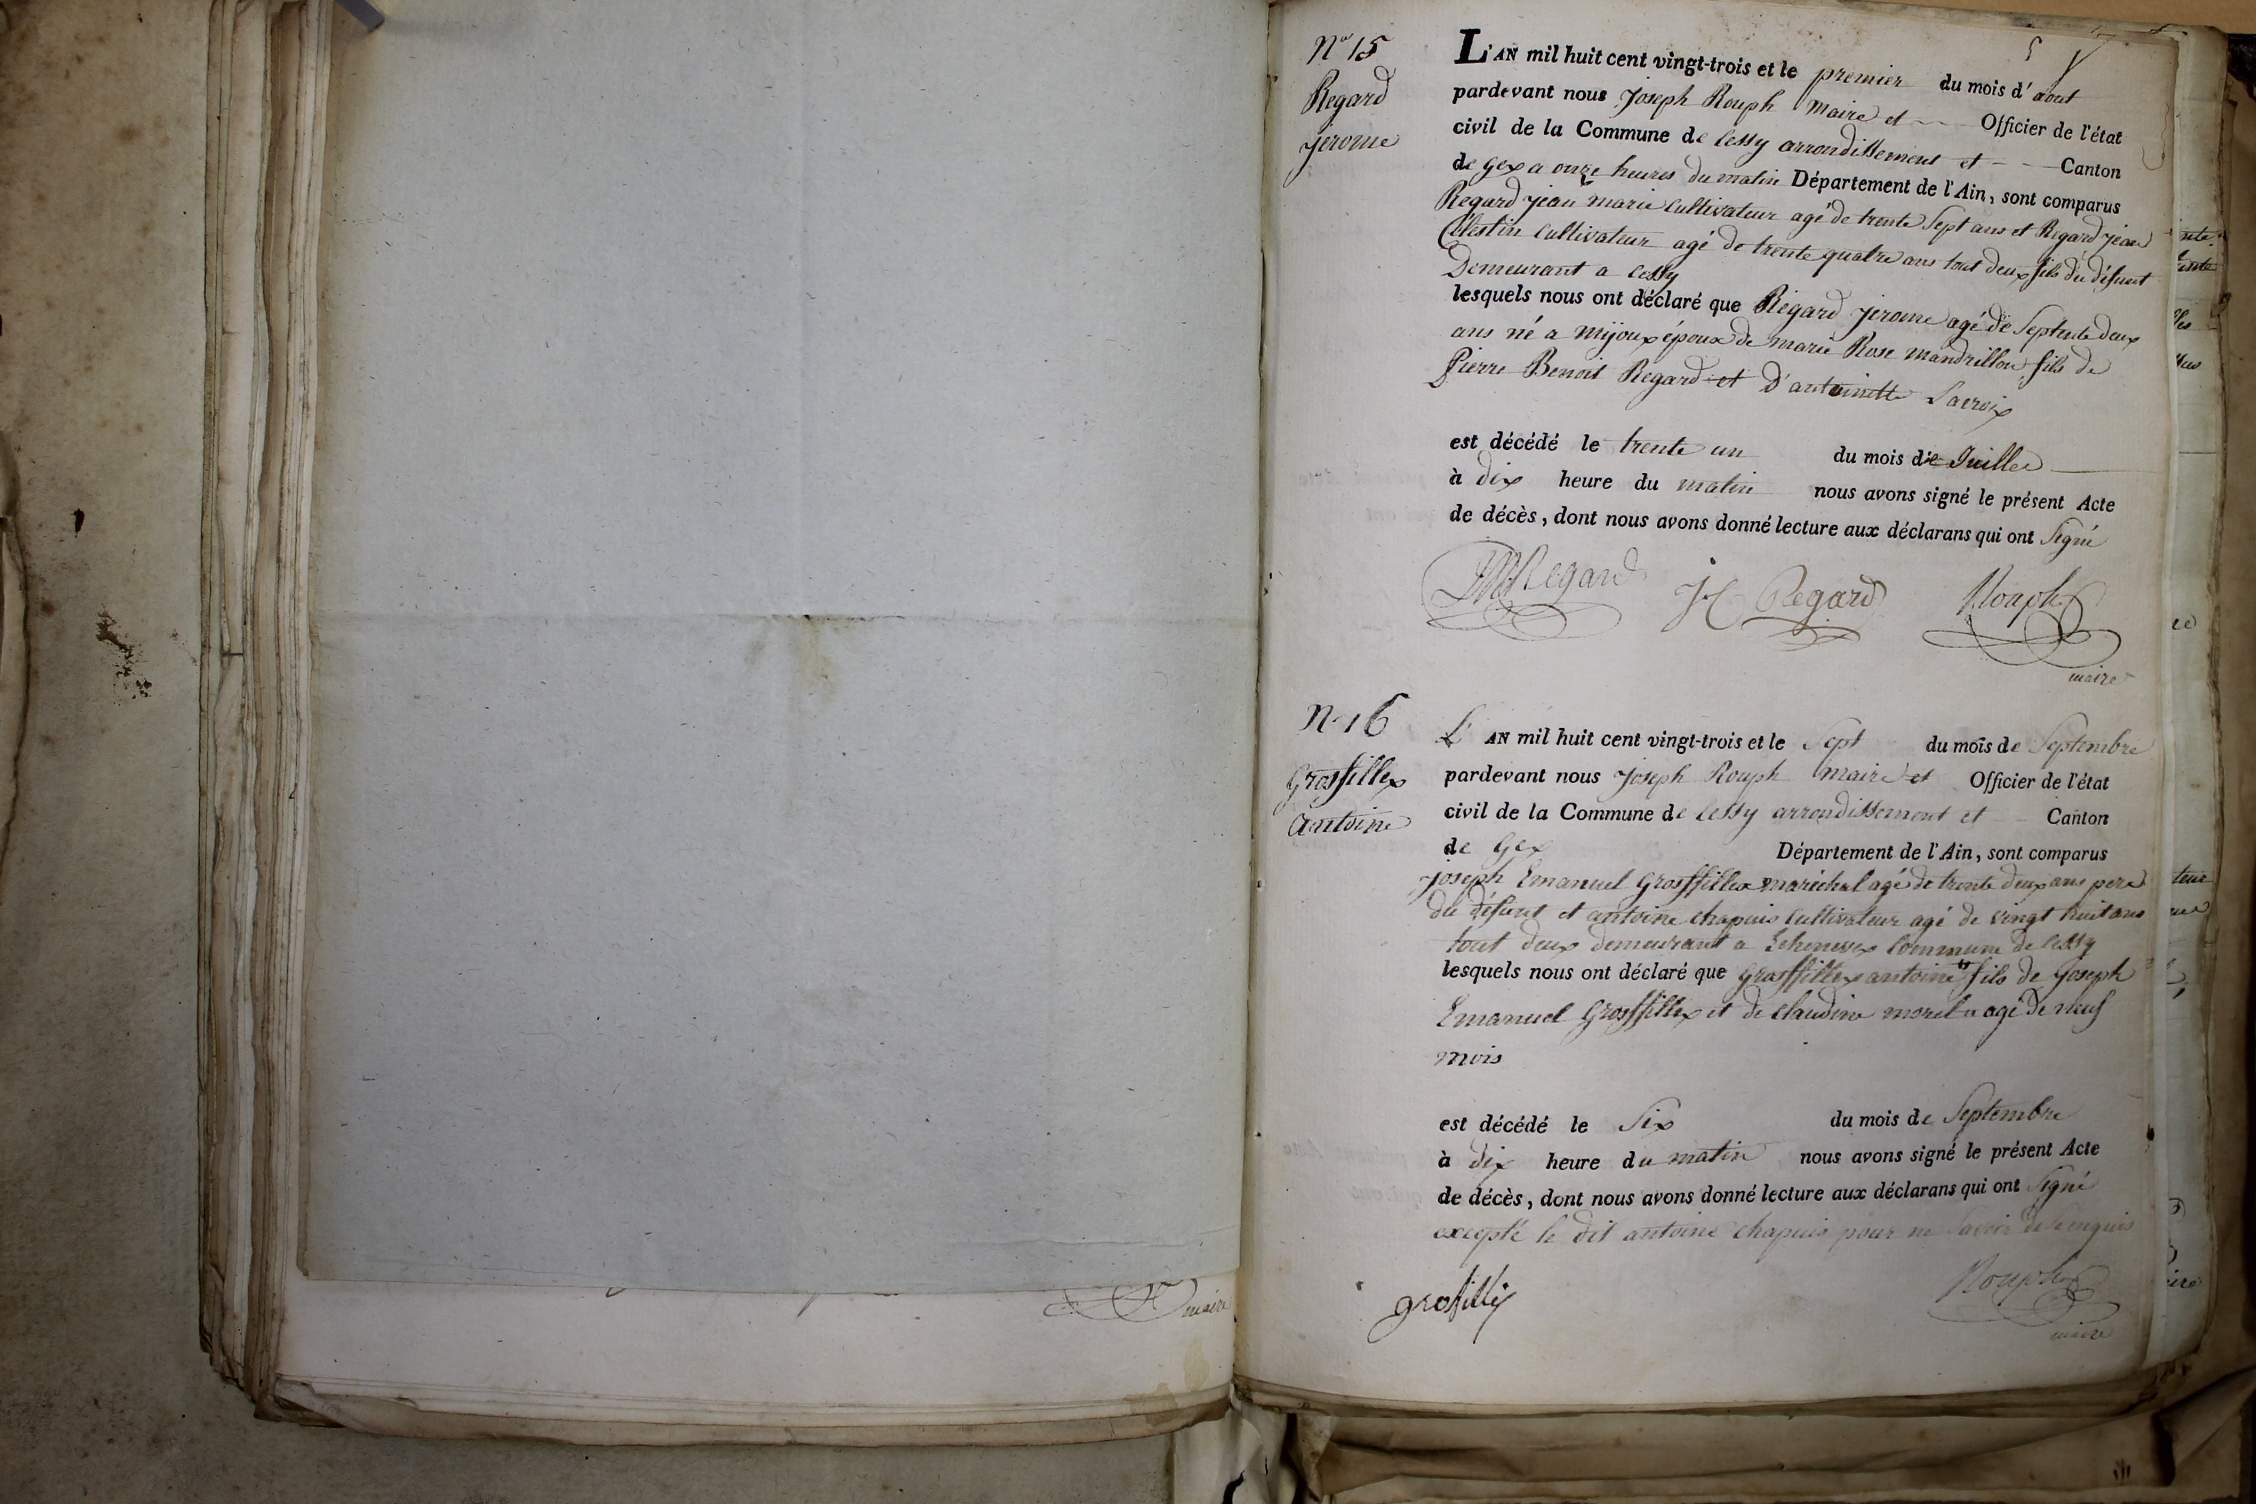 maire
N° 15
Regard
jerome
5
L'AN mil huit cent vingt-trois et le premier du mois d'aout
pardevant nous Joseph Rouph Maire et Officier de l'état
civil de la Commune de Cessy arrondissement et Canton
de Gex a onze heures du matin Département de l'Ain, sont comparus
Regard jean marie cultivateur agé de trente sept ans et Regard jean
Célestin cultivateur agé de trente quatre ans tout deux fils du défunt
Demeurant a Cessy
lesquels nous ont déclaré que Régard jerome agé de Septente deux
ans né a Mijoux époux de marie Rose mandrillon fils de
Pierre Benoit Regard et D'antoinette Lacroix
est décédé le trente un du mois de Juillet
à dix heure du matin nous avons signé le présent Acte
de décès, dont nous avons donné lecture aux déclarans qui ont Signé
JM Regard JC Regard Rouph
maire
N° 16
Grosfillex
antoine
L'AN mil huit cent vingt-trois et le Sept du mois de Septembre
pardevant nous Joseph Rouph Maire et Officier de l'état
civil de la Commune de Cessy arrondissement et Canton
de Gex Département de l'Ain, sont comparus
joseph Emanuel Grosffillex maréchal agé de trente deux ans pere
du défunt et antoine chapuis cultivateur agé de vingt huit ans
tout deux demeurant a Echenevex Commune de Cessy
lesquels nous ont déclaré que Grosffillex antoine fils de Joseph
Emanuel Grosffillex et de Claudine morel agé de neuf
mois
est décédé le Six du mois de Septembre
à dix heure du matin nous avons signé le présent Acte
de décès, dont nous avons donné lecture aux déclarans qui ont Signé
excepté le dit antoine chapuis pour ne Savoir de
grosfillex Rouph
maire